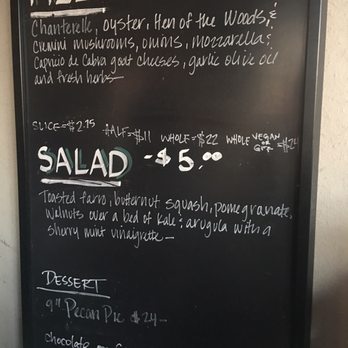 Chanterelle, oyster, Hen of the Woods, &
Cremini mushrooms, onions, mozzarella &
Capricio de Cabra goat cheeses, garlic olive oil
and fresh herbs—
SLICE=$2.75 HALF=$11 WHOLE=$22 WHOLE VEGAN OR GF?
SALAD -$5.00
Toasted farro, butternut squash, pomegranate,
walnuts over a bed of kale & arugula with a
sherry mint vinaigrette—
DESSERT
9" Pecan Pie $24—
chocolate